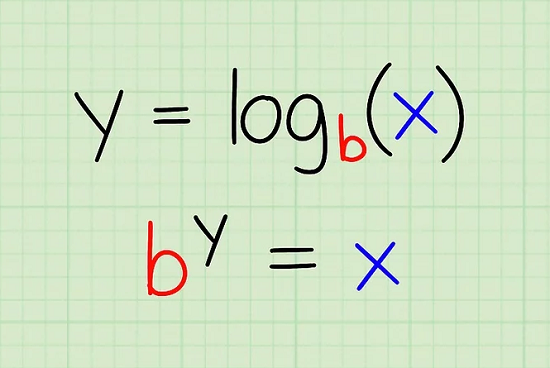 y = log_b(x)
b^y = x